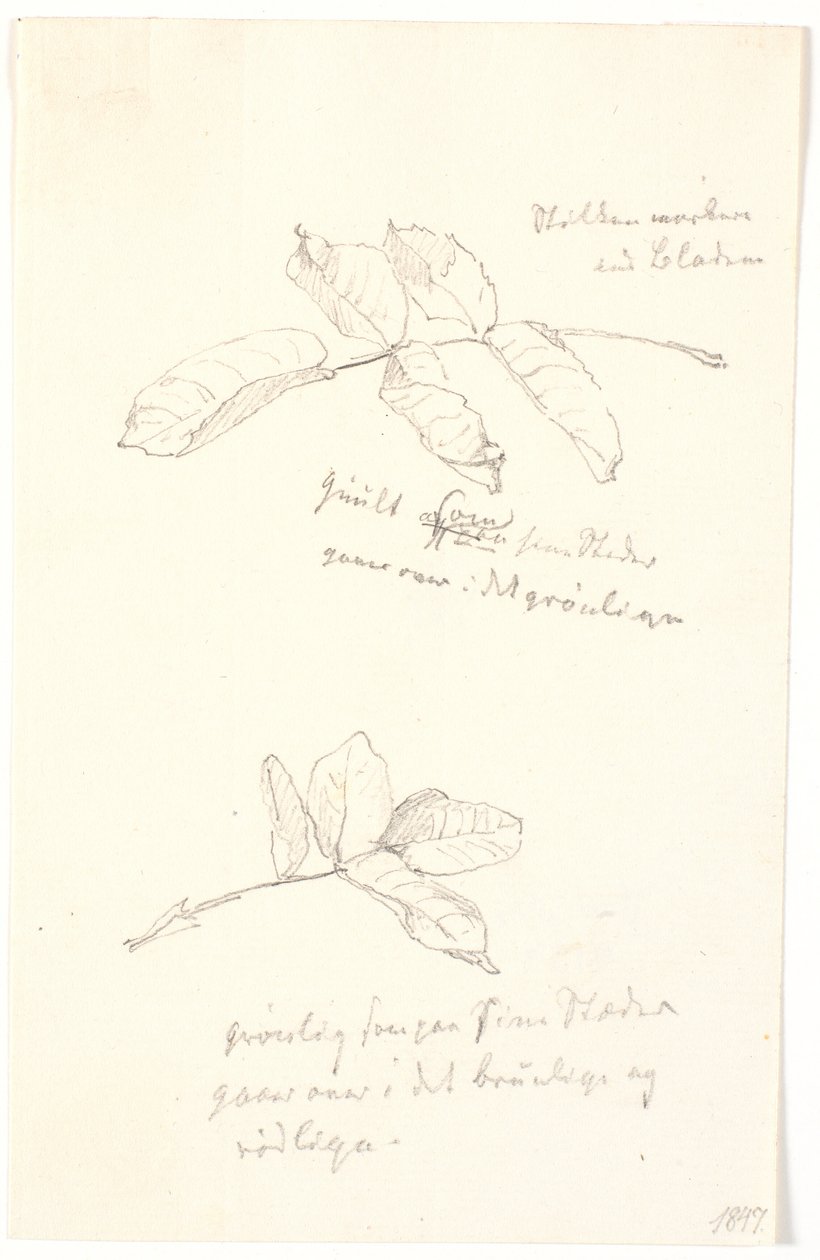 Stilken mørkere
end Bladene
guult som
paa sine Steder
gaaer over i det grönlige
grönlig som paa Sine Stæder
gaaer over i det brunlige og
rödlige.
1847.